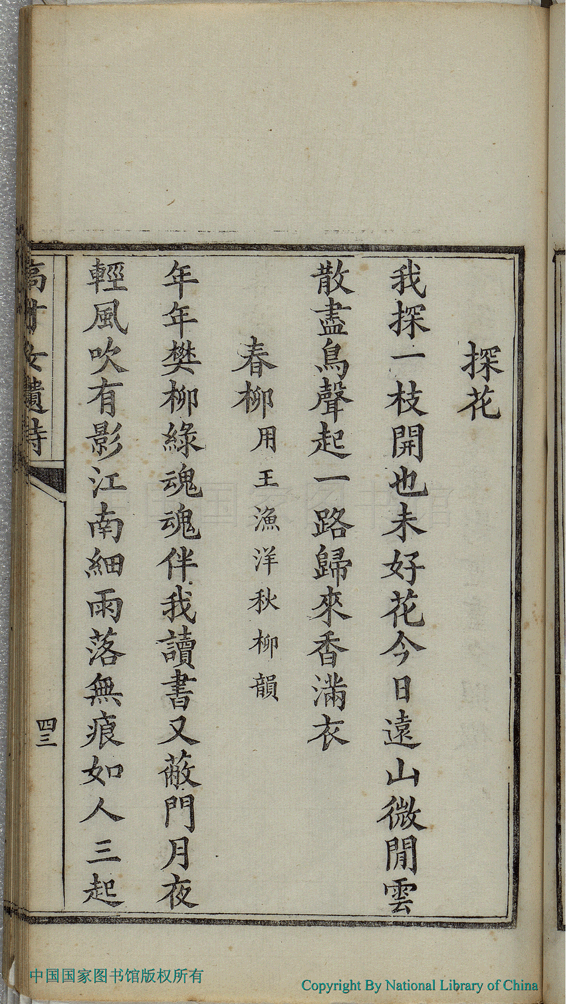 探花
我探一枝開也未好花今日遠山微閒雲
散盡鳥聲起一路歸來香滿衣
春柳用王漁洋秋柳韻
年年樊柳綠魂魂伴我讀書又蔽門月夜
輕風吹有影江南細雨落無痕如人三起
女遺詩
四三
中国国家图书馆
中国国家图书馆版权所有
Copyright By National Library of China